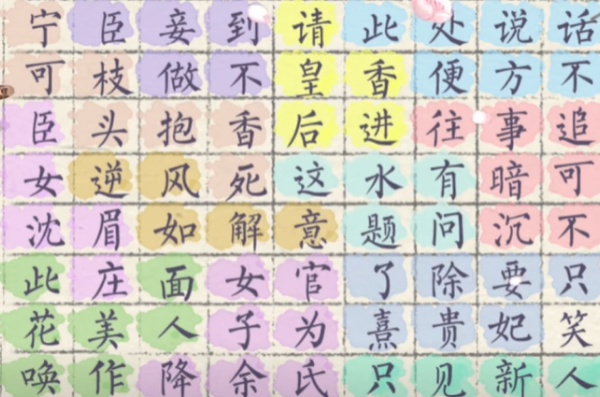 宁臣妾到请此处说话
可枝做不皇香便方不
臣头抱香后进往事追
女逆风死这水有暗可
沈眉如解意题问沉不
此庄面女官了除要只
花美人子为熹贵妃笑
唤作降余氏只见新人